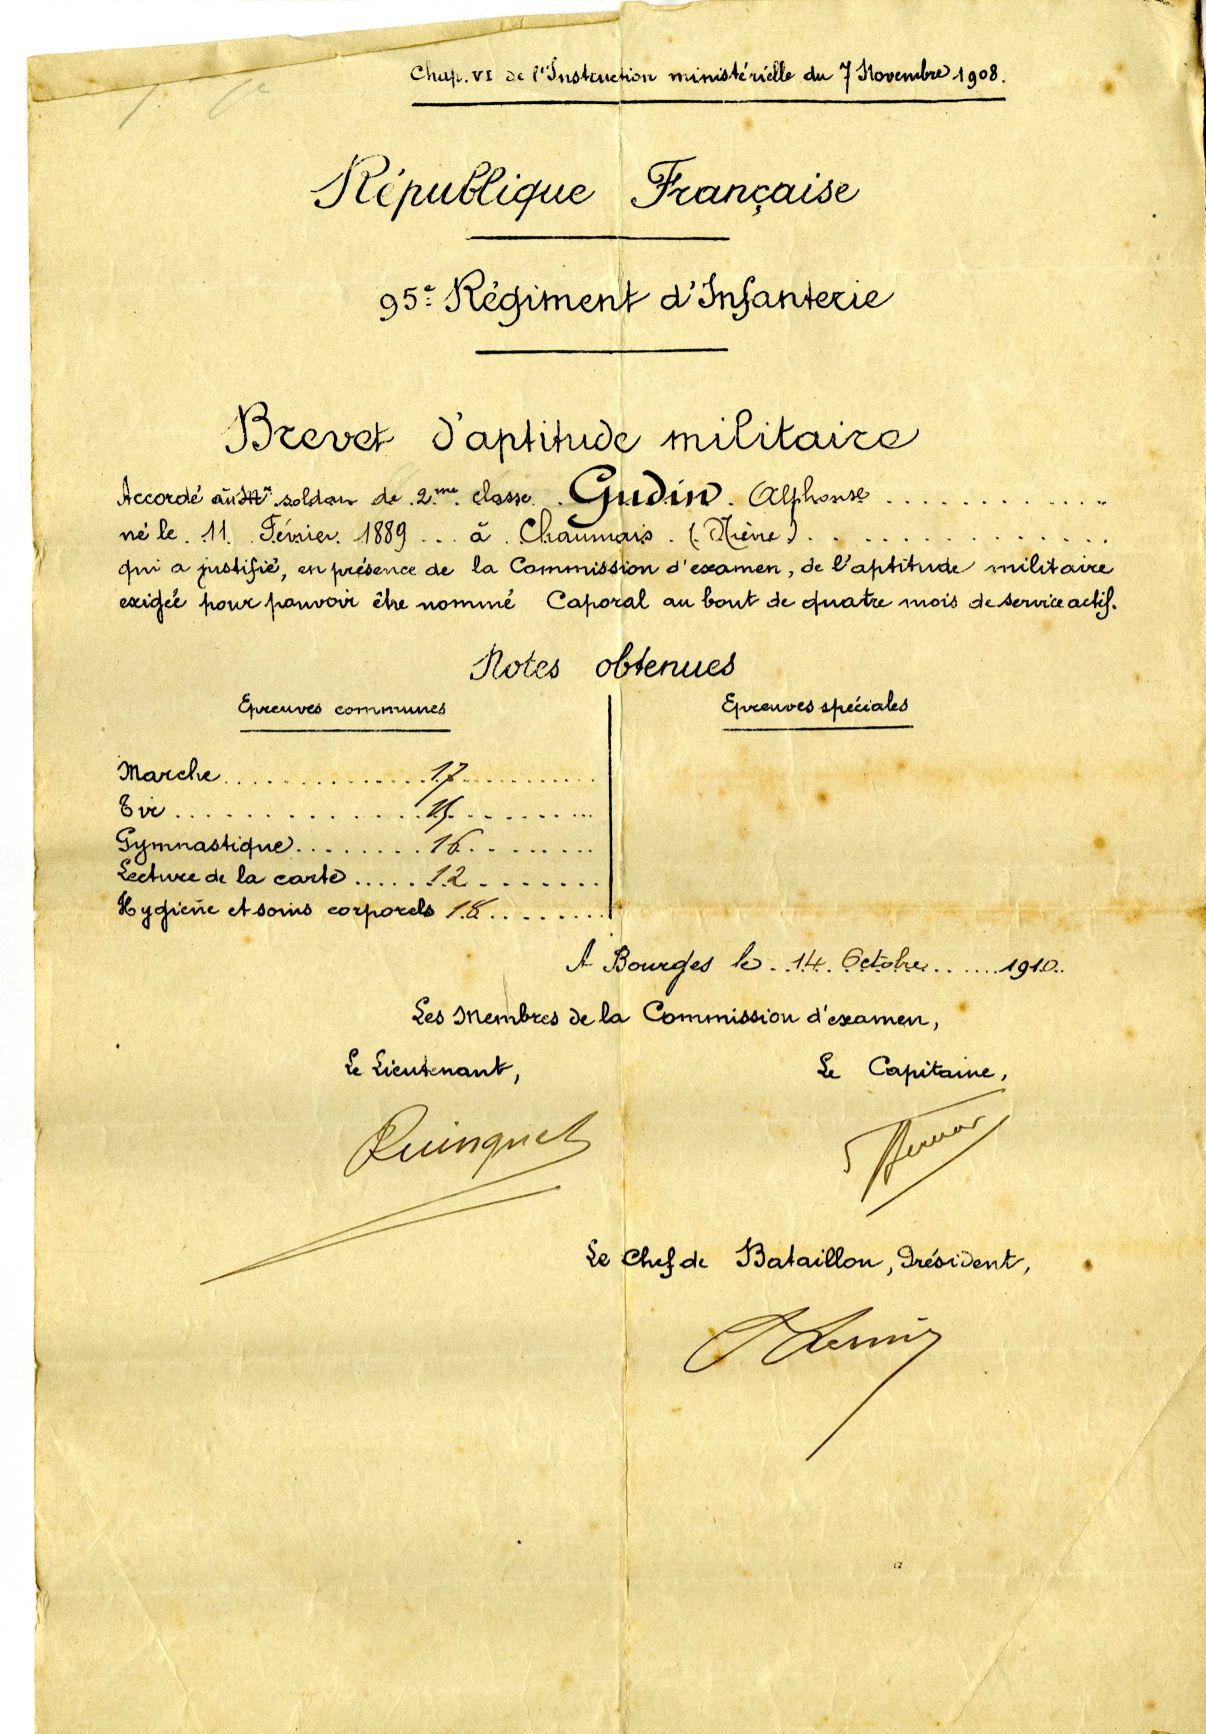 Chap. VI de l'Instruction ministérielle du 7 Novembre 1908.
République Française
95e Régiment d'Infanterie
Brevet d'aptitude militaire
Accordé au soldat de 2me classe Gudin Alphonse
né le 11 Février 1889 à Chaumais (Nièvre)
qui a justifié, en présence de la Commission d'examen, de l'aptitude militaire
exigée pour pouvoir être nommé Caporal au bout de quatre mois de service actif.
Notes obtenues
Epreuves communes
Epreuves spéciales
Marche 17
Tir 15
Gymnastique 16
Lecture de la carte 12
Hygiène et soins corporels 18
A Bourges le 14 Octobre 1910
Les Membres de la Commission d'examen,
Le Lieutenant,
Le Capitaine,
Quinquet
Le Chef de Bataillon, Président,